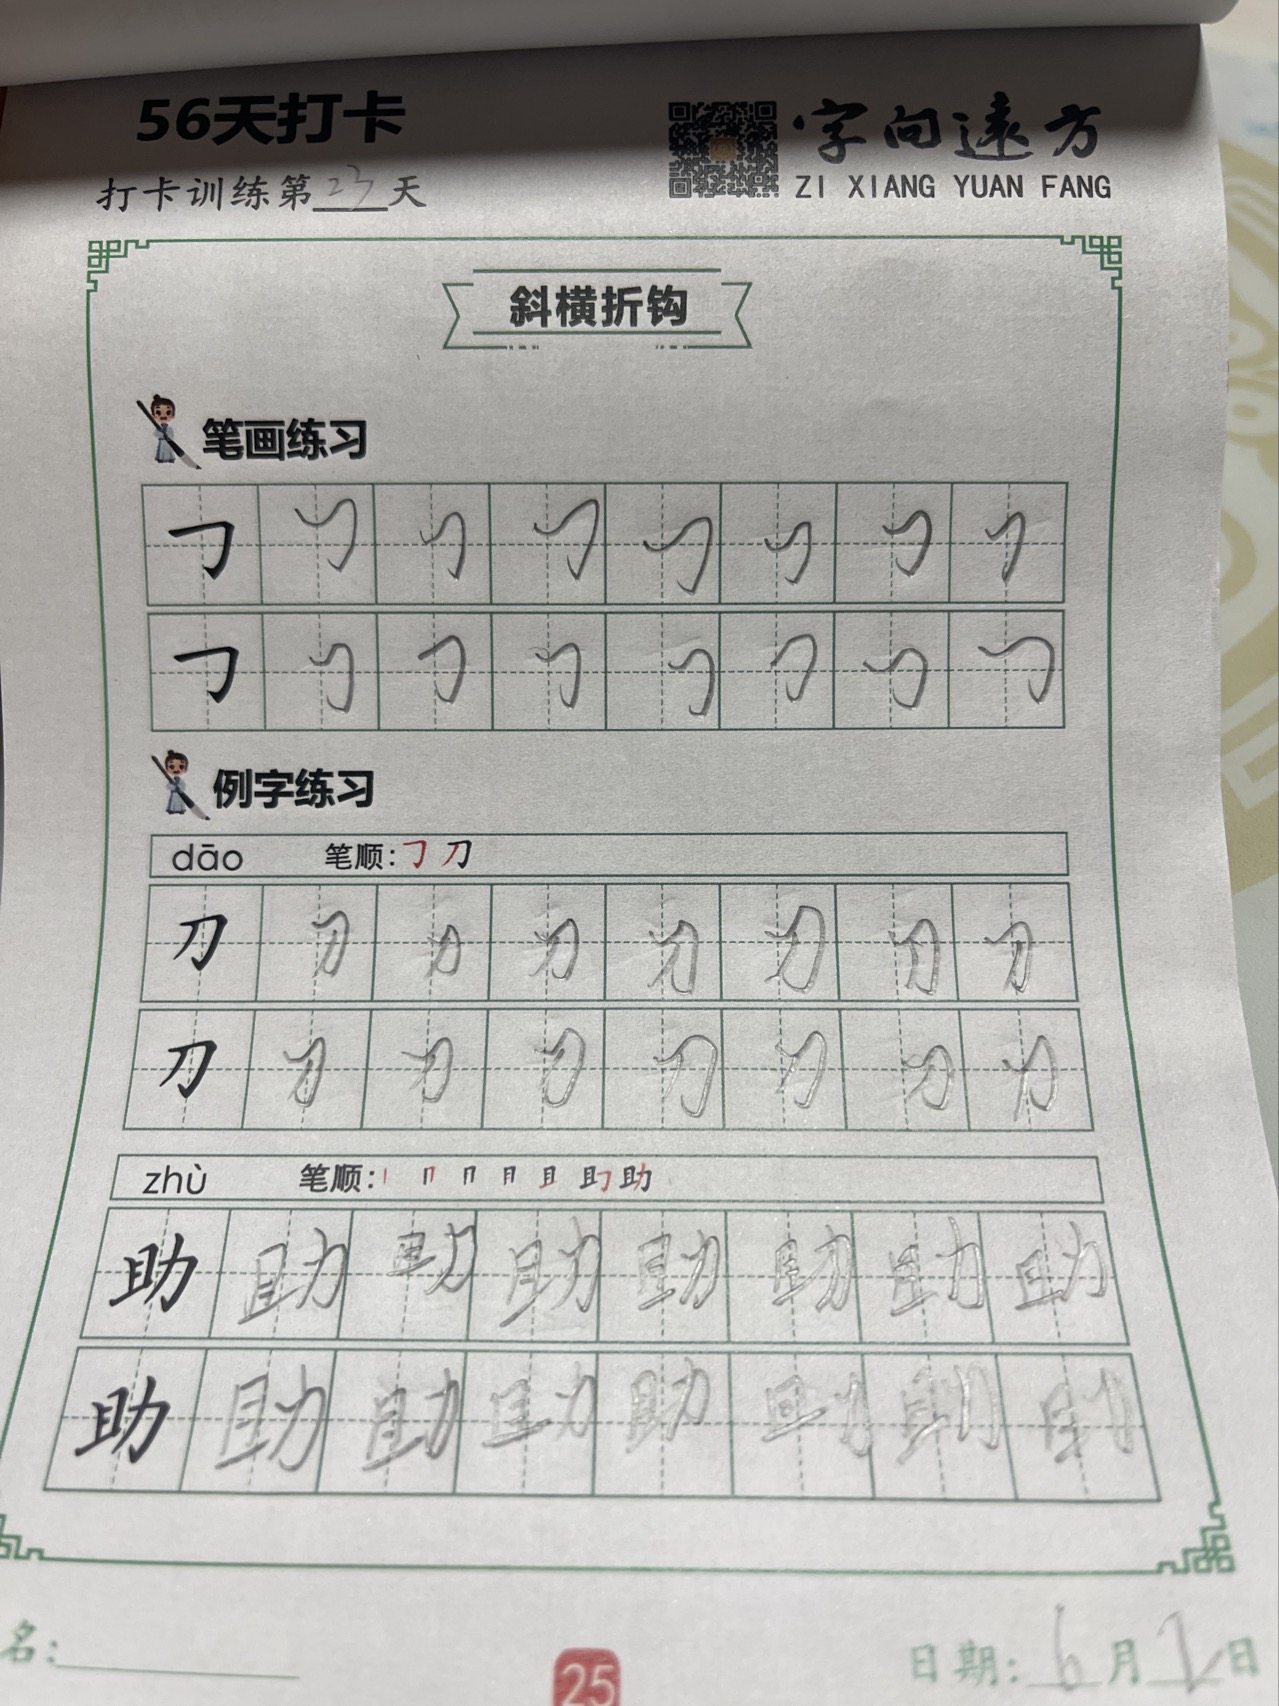 56天打卡
字向遠方
打卡训练第23天
ZI XIANG YUAN FANG
斜横折钩
笔画练习
㇆ ㇆ ㇆ ㇆ ㇆ ㇆ ㇆ ㇆
㇆ ㇆ ㇆ ㇆ ㇆ ㇆ ㇆ ㇆
例字练习
dāo 笔顺: ㇆ 刀
刀 刀 刀 刀 刀 刀 刀 刀
刀 刀 刀 刀 刀 刀 刀 刀
zhù 笔顺: 丨 冂 冂 月 且 助
助 助 助 助 助 助 助 助
助 助 助 助 助 助 助 助
名:
日期: 6月2日
25